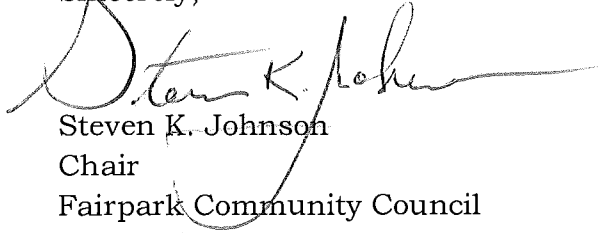 Sincerely,
Steven K. Johnson
Steven K. Johnson
Chair
Fairpark Community Council